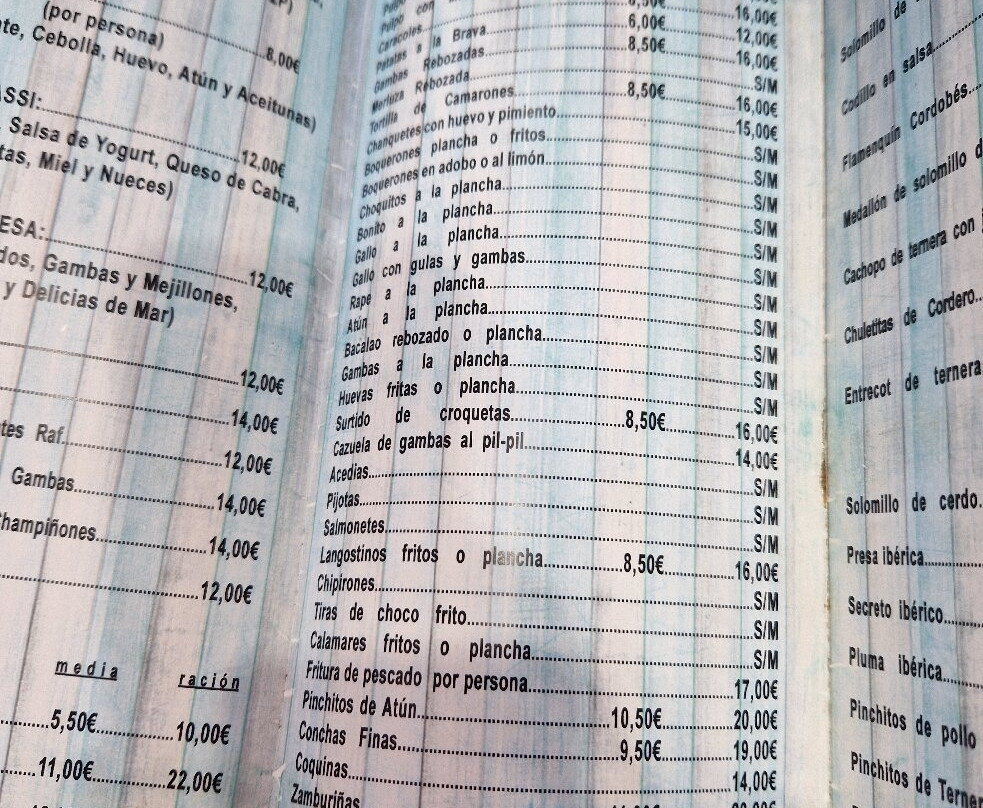 (por persona)..........8,00€
Cebolla, Huevo, Atún y Aceitunas)
ASSI:..........12,00€
Salsa de Yogurt, Queso de Cabra,
Miel y Nueces)
ESA:..........12,00€
dos, Gambas y Mejillones,
y Delicias de Mar)
..........12,00€
..........14,00€
tes Raf..........12,00€
Gambas..........14,00€
Champiñones..........14,00€
..........12,00€
media ración
.....5,50€..........10,00€
.....11,00€..........22,00€
Pulpo con
Caracoles..........16,00€
Patatas a la Brava..........6,00€..........12,00€
Gambas Rebozadas..........8,50€..........16,00€
Merluza Rebozada..........S/M
Tortilla de Camarones..........8,50€..........16,00€
Chanquetes con huevo y pimiento..........15,00€
Boquerones plancha o fritos..........S/M
Boquerones en adobo o al limón..........S/M
Choquitos a la plancha..........S/M
Bonito a la plancha..........S/M
Gallo a la plancha..........S/M
Gallo con gulas y gambas..........S/M
Rape a la plancha..........S/M
Atún a la plancha..........S/M
Bacalao rebozado o plancha..........S/M
Gambas a la plancha..........S/M
Huevas fritas o plancha..........S/M
Surtido de croquetas..........8,50€..........16,00€
Cazuela de gambas al pil-pil..........14,00€
Acedias..........S/M
Pijotas..........S/M
Salmonetes..........S/M
Langostinos fritos o plancha..........8,50€..........16,00€
Chipirones..........S/M
Tiras de choco frito..........S/M
Calamares fritos o plancha..........S/M
Fritura de pescado por persona..........17,00€
Pinchitos de Atún..........10,50€..........20,00€
Conchas Finas..........9,50€..........19,00€
Coquinas..........14,00€
Zamburiñas
Solomillo de
Codillo en salsa..........
Flamenquín Cordobés....
Medallón de solomillo d
Cachopo de ternera con
Chuletitas de Cordero..
Entrecot de ternera
Solomillo de cerdo.
Presa ibérica..........
Secreto ibérico..........
Pluma ibérica..........
Pinchitos de pollo
Pinchitos de Terne